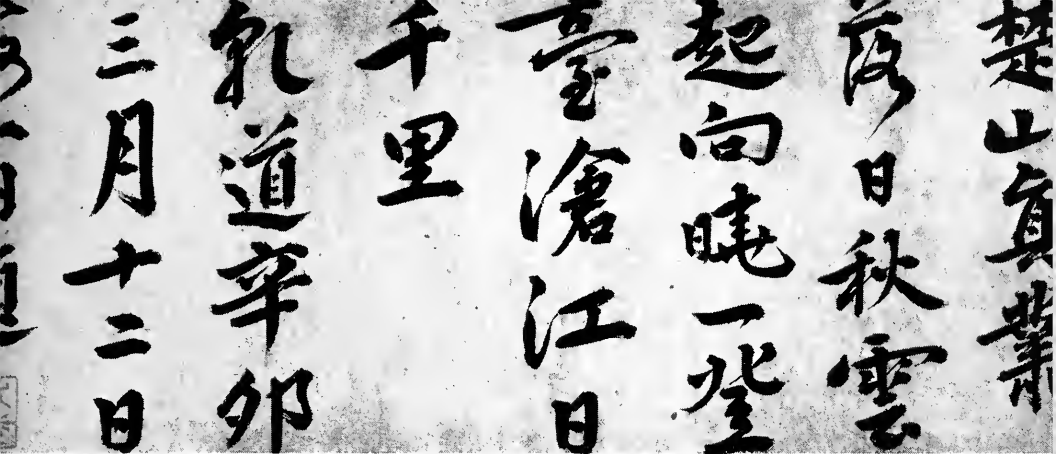 楚山眞業
落日秋雲
起向曉一登
臺滄江日
千里
乾道辛卯
三月十二日